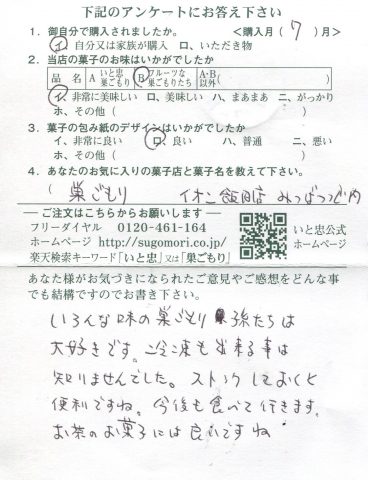 下記のアンケートにお答え下さい
1. 御自分で購入されましたか。 <購入月( 7 )月>
イ、自分又は家族が購入 ロ、いただき物
2. 当店の菓子のお味はいかがでしたか
品 名 A いと忠巣ごもり B フルーツな巣ごもりたち A・B以外( )
イ、非常に美味しい ロ、美味しい ハ、まあまあ ニ、がっかり
ホ、その他 ( )
3. 菓子の包み紙のデザインはいかがでしたか
イ、非常に良い ロ、良い ハ、普通 ニ、悪い
ホ、その他 ( )
4. あなたのお気に入りの菓子店と菓子名を教えて下さい。
( 巣ごもり イオン飯田店 みつばつつじ内
― ご注文はこちらからお願いします ―
フリーダイヤル 0120-461-164
ホームページ http://sugomori.co.jp/
楽天検索キーワード「いと忠」又は「巣ごもり」
いと忠公式
ホームページ
あなた様がお気づきになられたご意見やご感想をどんな事
でも結構ですのでお書き下さい。
いろんな味の巣ごもり 孫たちは
大好きです。冷凍も出来る事は
知りませんでした。ストックしておくと
便利ですね。今後も食べて行きます。
お茶のお菓子には良いですね